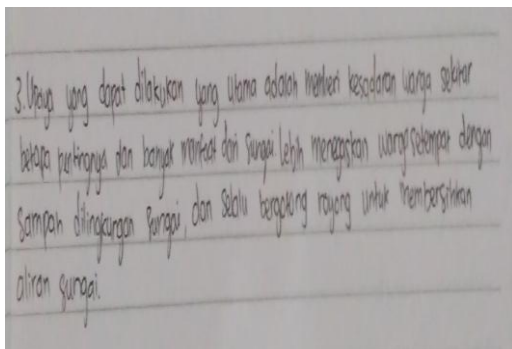 3. Upaya yang dapat dilakukan yang utama adalah memberi kesadaran warga sekitar
betapa pentingnya dan banyak manfaat dari sungai. Lebih menegaskan warga setempat dengan
sampah dilingkungan sungai, dan selalu bergotong royong untuk membersihkan
aliran sungai.